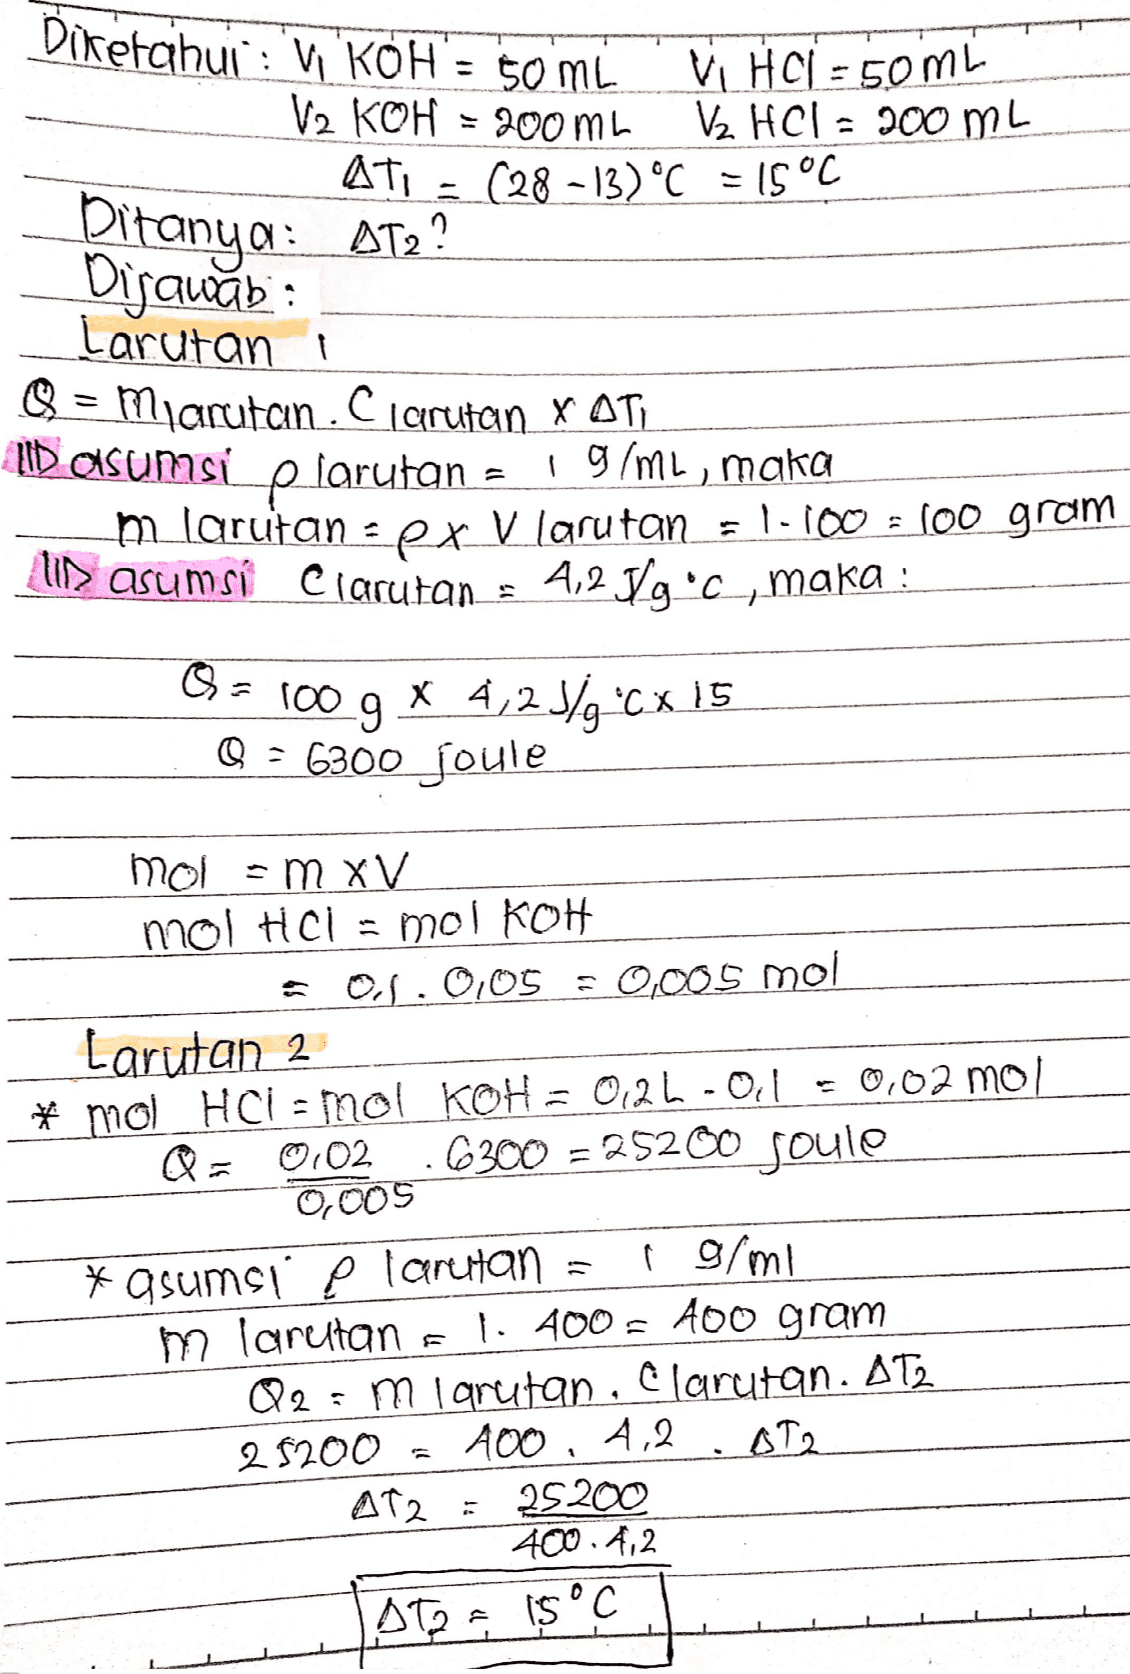 Diketahui : V1 KOH = 50 mL V1 HCl = 50 mL
V2 KOH = 200 mL V2 HCl = 200 mL
ΔT1 = (28 - 13)°C = 15°C
Ditanya : ΔT2?
Dijawab :
Larutan 1
Q = m larutan . C larutan x ΔT1
asumsi ρ larutan = 1 g/mL, maka
m larutan = ρ x V larutan = 1 . 100 = 100 gram
asumsi C larutan = 4,2 J/g °C, maka :
Q = 100 g x 4,2 J/g °C x 15
Q = 6300 Joule
mol = m x V
mol HCl = mol KOH
= 0,1 . 0,05 = 0,005 mol
Larutan 2
* mol HCl = mol KOH = 0,2 L . 0,1 = 0,02 mol
Q = 0,02 . 6300 = 25200 Joule
0,005
* asumsi ρ larutan = 1 g/ml
m larutan = 1 . 400 = 400 gram
Q2 = m larutan . C larutan . ΔT2
25200 = 400 . 4,2 . ΔT2
ΔT2 = 25200
400 . 4,2
ΔT2 = 15°C